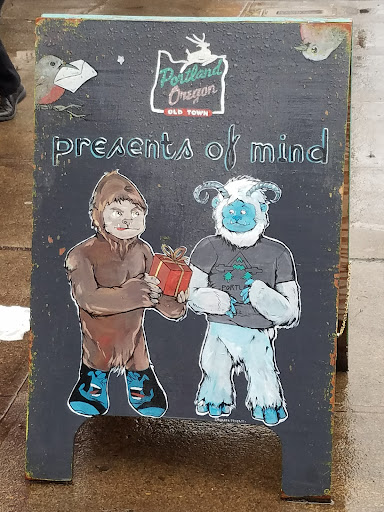 Portland
Oregon
OLD TOWN
presents of mind
PORTL